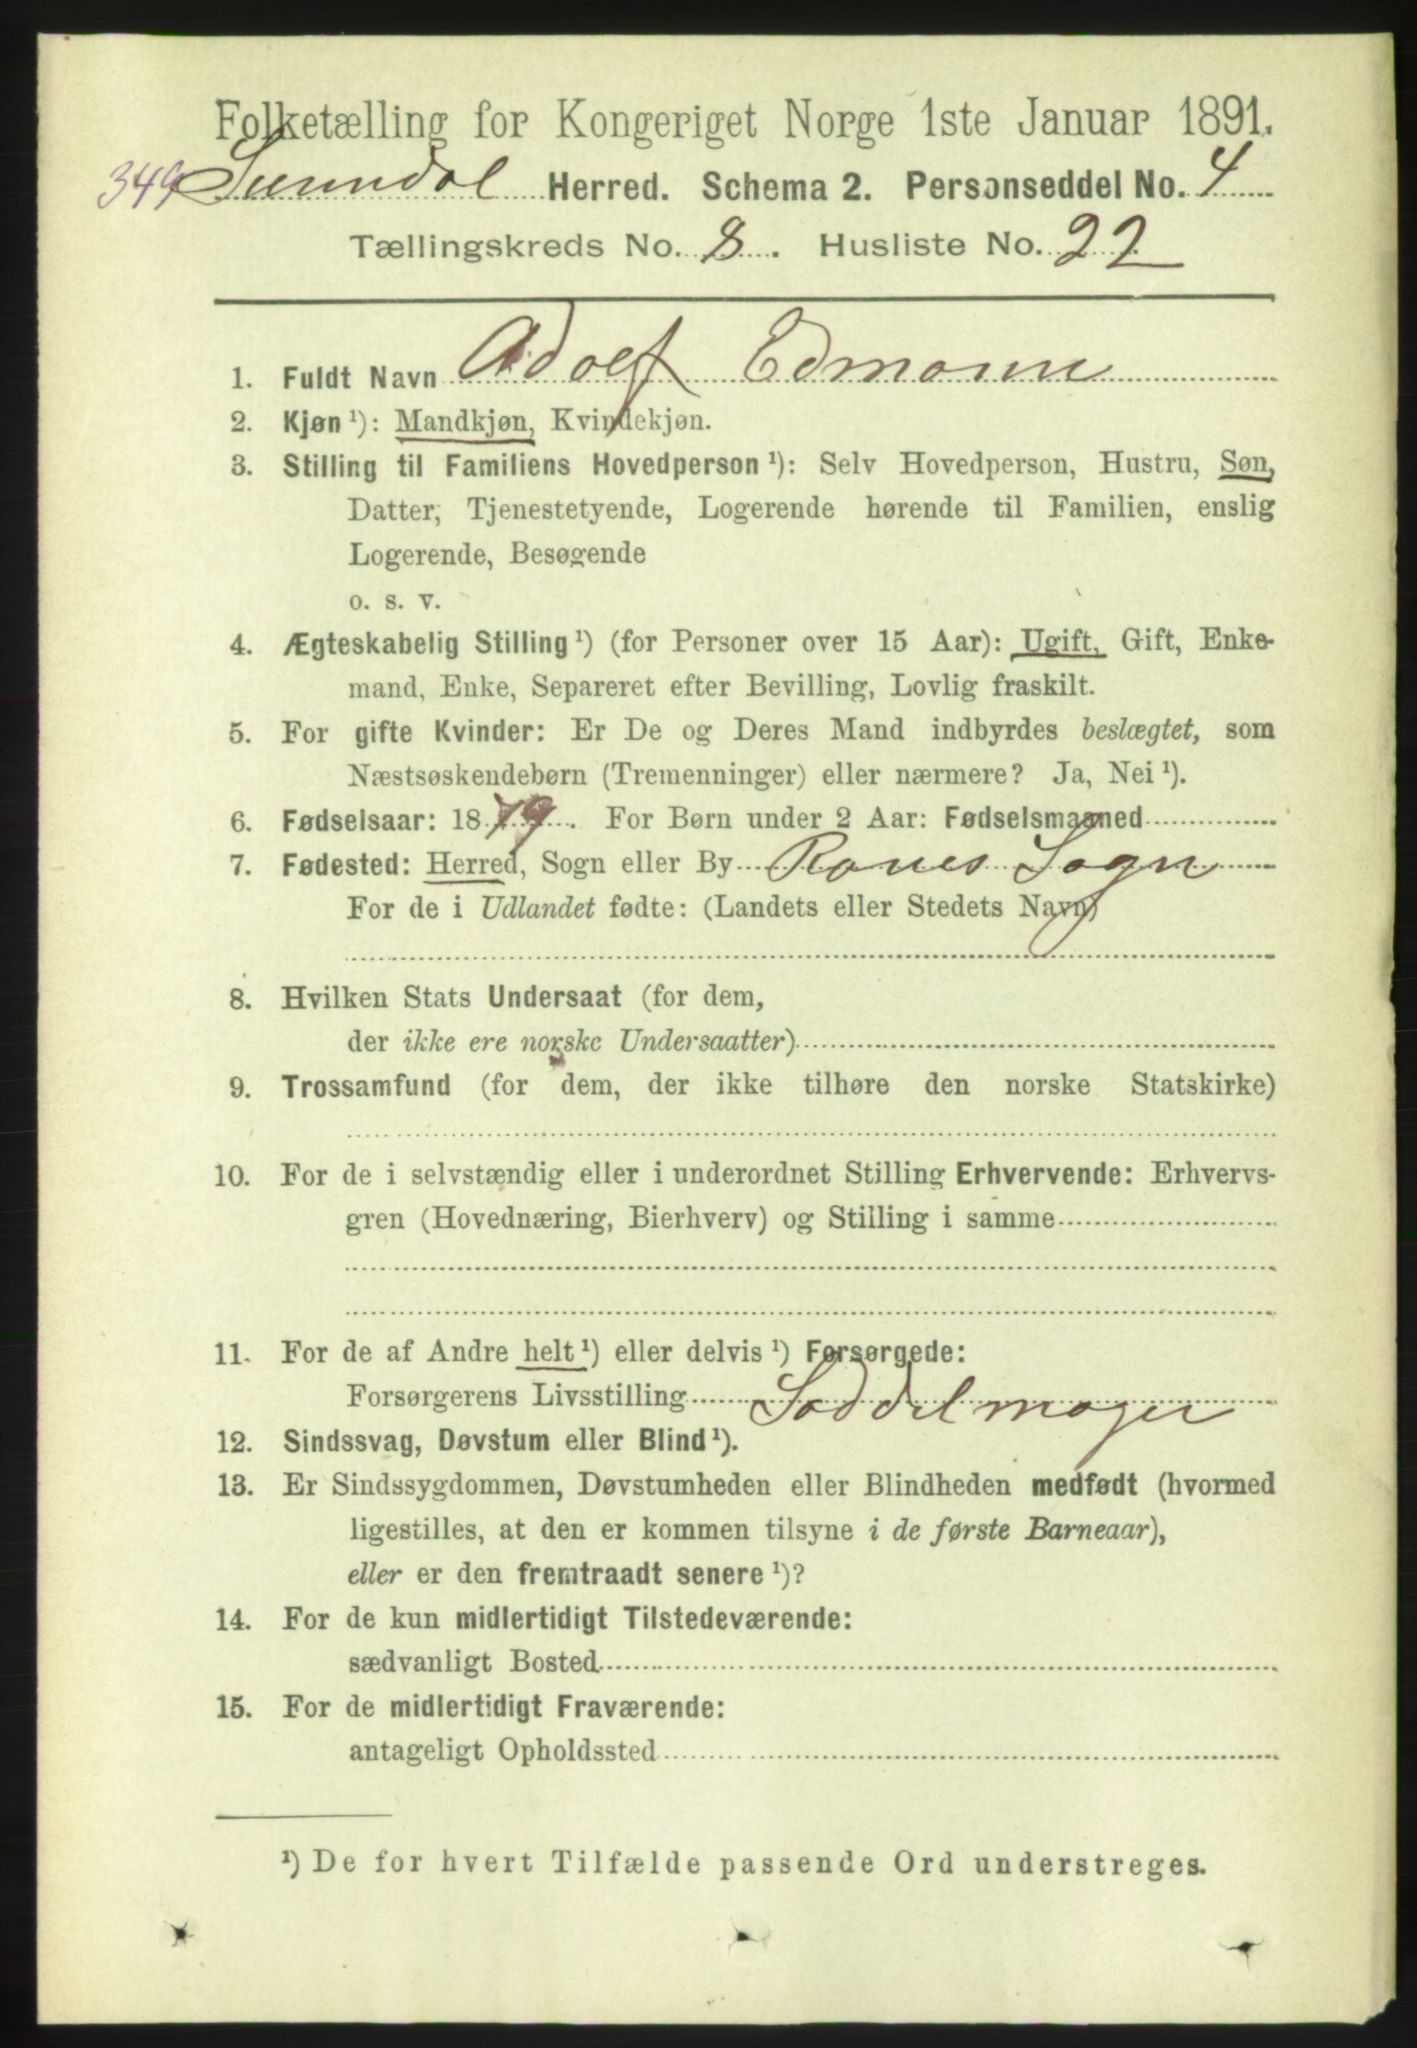 Folketælling for Kongeriget Norge 1ste Januar 1891.
349 Sunndal Herred. Schema 2. Personseddel No. 4
Tællingskreds No. 8. Husliste No. 22
1. Fuldt Navn Adolf Edmann
2. Kjøn ¹): Mandkjøn, Kvindekjøn.
3. Stilling til Familiens Hovedperson ¹): Selv Hovedperson, Hustru, Søn,
Datter, Tjenestetyende, Logerende hørende til Familien, enslig
Logerende, Besøgende
o. s. v.
4. Ægteskabelig Stilling ¹) (for Personer over 15 Aar): Ugift, Gift, Enke-
mand, Enke, Separeret efter Bevilling, Lovlig fraskilt.
5. For gifte Kvinder: Er De og Deres Mand indbyrdes beslægtet, som
Næstsøskendebørn (Tremenninger) eller nærmere? Ja, Nei ¹).
6. Fødselsaar: 1879. For Børn under 2 Aar: Fødselsmaaned
7. Fødested: Herred, Sogn eller By Rones Sogn
For de i Udlandet fødte: (Landets eller Stedets Navn)
8. Hvilken Stats Undersaat (for dem,
der ikke ere norske Undersaatter)
9. Trossamfund (for dem, der ikke tilhøre den norske Statskirke)
10. For de i selvstændig eller i underordnet Stilling Erhvervende: Erhvervs-
gren (Hovednæring, Bierhverv) og Stilling i samme
11. For de af Andre helt ¹) eller delvis ¹) Forsørgede:
Forsørgerens Livsstilling Saddelmager
12. Sindssvag, Døvstum eller Blind ¹).
13. Er Sindssygdommen, Døvstumheden eller Blindheden medfødt (hvormed
ligestilles, at den er kommen tilsyne i de første Barneaar),
eller er den fremtraadt senere ¹)?
14. For de kun midlertidigt Tilstedeværende:
sædvanligt Bosted
15. For de midlertidigt Fraværende:
antageligt Opholdssted
¹) De for hvert Tilfælde passende Ord understreges.